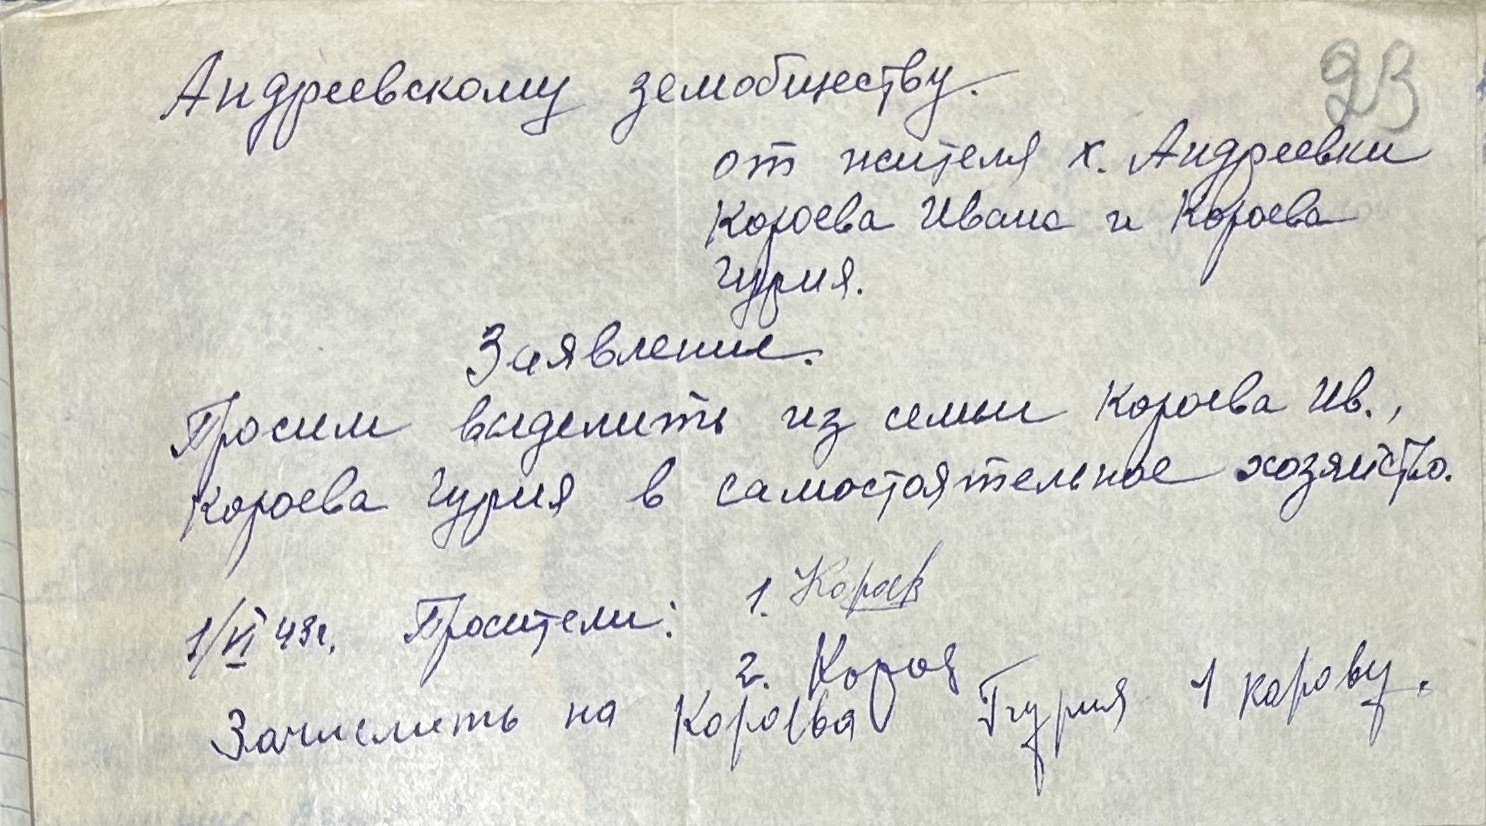 23
Андреевскому земобществу.
от жителя х. Андреевки
Короева Ивана и Короева
Гурия.
Заявление.
Просим выделить из семьи Короева Ив.,
Короева Гурия в самостоятельное хозяйство.
1/VI 43г. Просители: 1. Короев
2. Короев
Зачислить на Короева Гурия 1 корову.